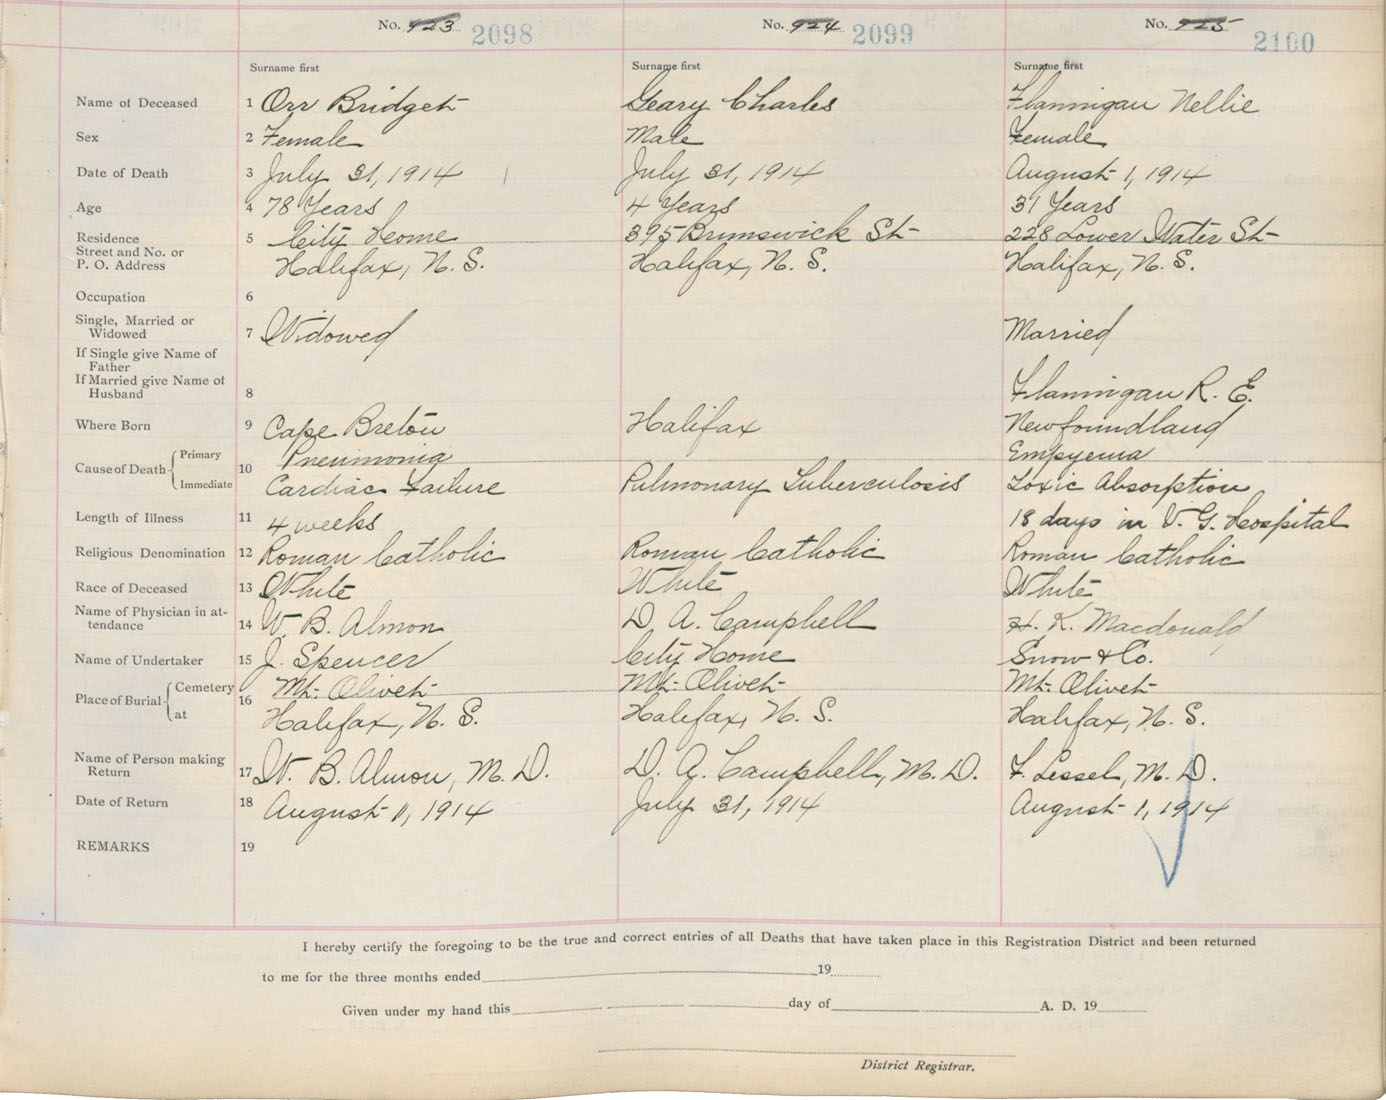 No. 923 2098 No. 924 2099 No. 925 2100
Surname first Surname first Surname first
Name of Deceased 1 Orr Bridget Geary Charles Flannigan Nellie
Sex 2 Female Male Female
Date of Death 3 July 31, 1914 July 31, 1914 August 1, 1914
Age 4 78 Years 4 Years 31 Years
Residence 5 City Home 395 Brunswick St 228 Lower Water St
Street and No. or
P. O. Address Halifax, N. S. Halifax, N. S. Halifax, N. S.
Occupation 6
Single, Married or
Widowed 7 Widowed Married
If Single give Name of
Father
If Married give Name of
Husband 8 Flannigan R. E.
Where Born 9 Cape Breton Halifax Newfoundland
Cause of Death Primary 10 Pneumonia Empyema
Immediate Cardiac Failure Pulmonary Tuberculosis Toxic Absorption
Length of Illness 11 4 weeks 18 days in V. G. Hospital
Religious Denomination 12 Roman Catholic Roman Catholic Roman Catholic
Race of Deceased 13 White White White
Name of Physician in at-
tendance 14 W. B. Almon D. A. Campbell H. K. Macdonald
Name of Undertaker 15 J. Spencer City Home Snow & Co.
Place of Burial Cemetery 16 Mt. Olivet Mt. Olivet Mt. Olivet
at Halifax, N. S. Halifax, N. S. Halifax, N. S.
Name of Person making
Return 17 W. B. Almon, M. D. D. A. Campbell, M. D. F. Lessel, M. D.
Date of Return 18 August 11, 1914 July 31, 1914 August 1, 1914
REMARKS 19
I hereby certify the foregoing to be the true and correct entries of all Deaths that have taken place in this Registration District and been returned
to me for the three months ended 19
Given under my hand this day of A. D. 19
District Registrar.